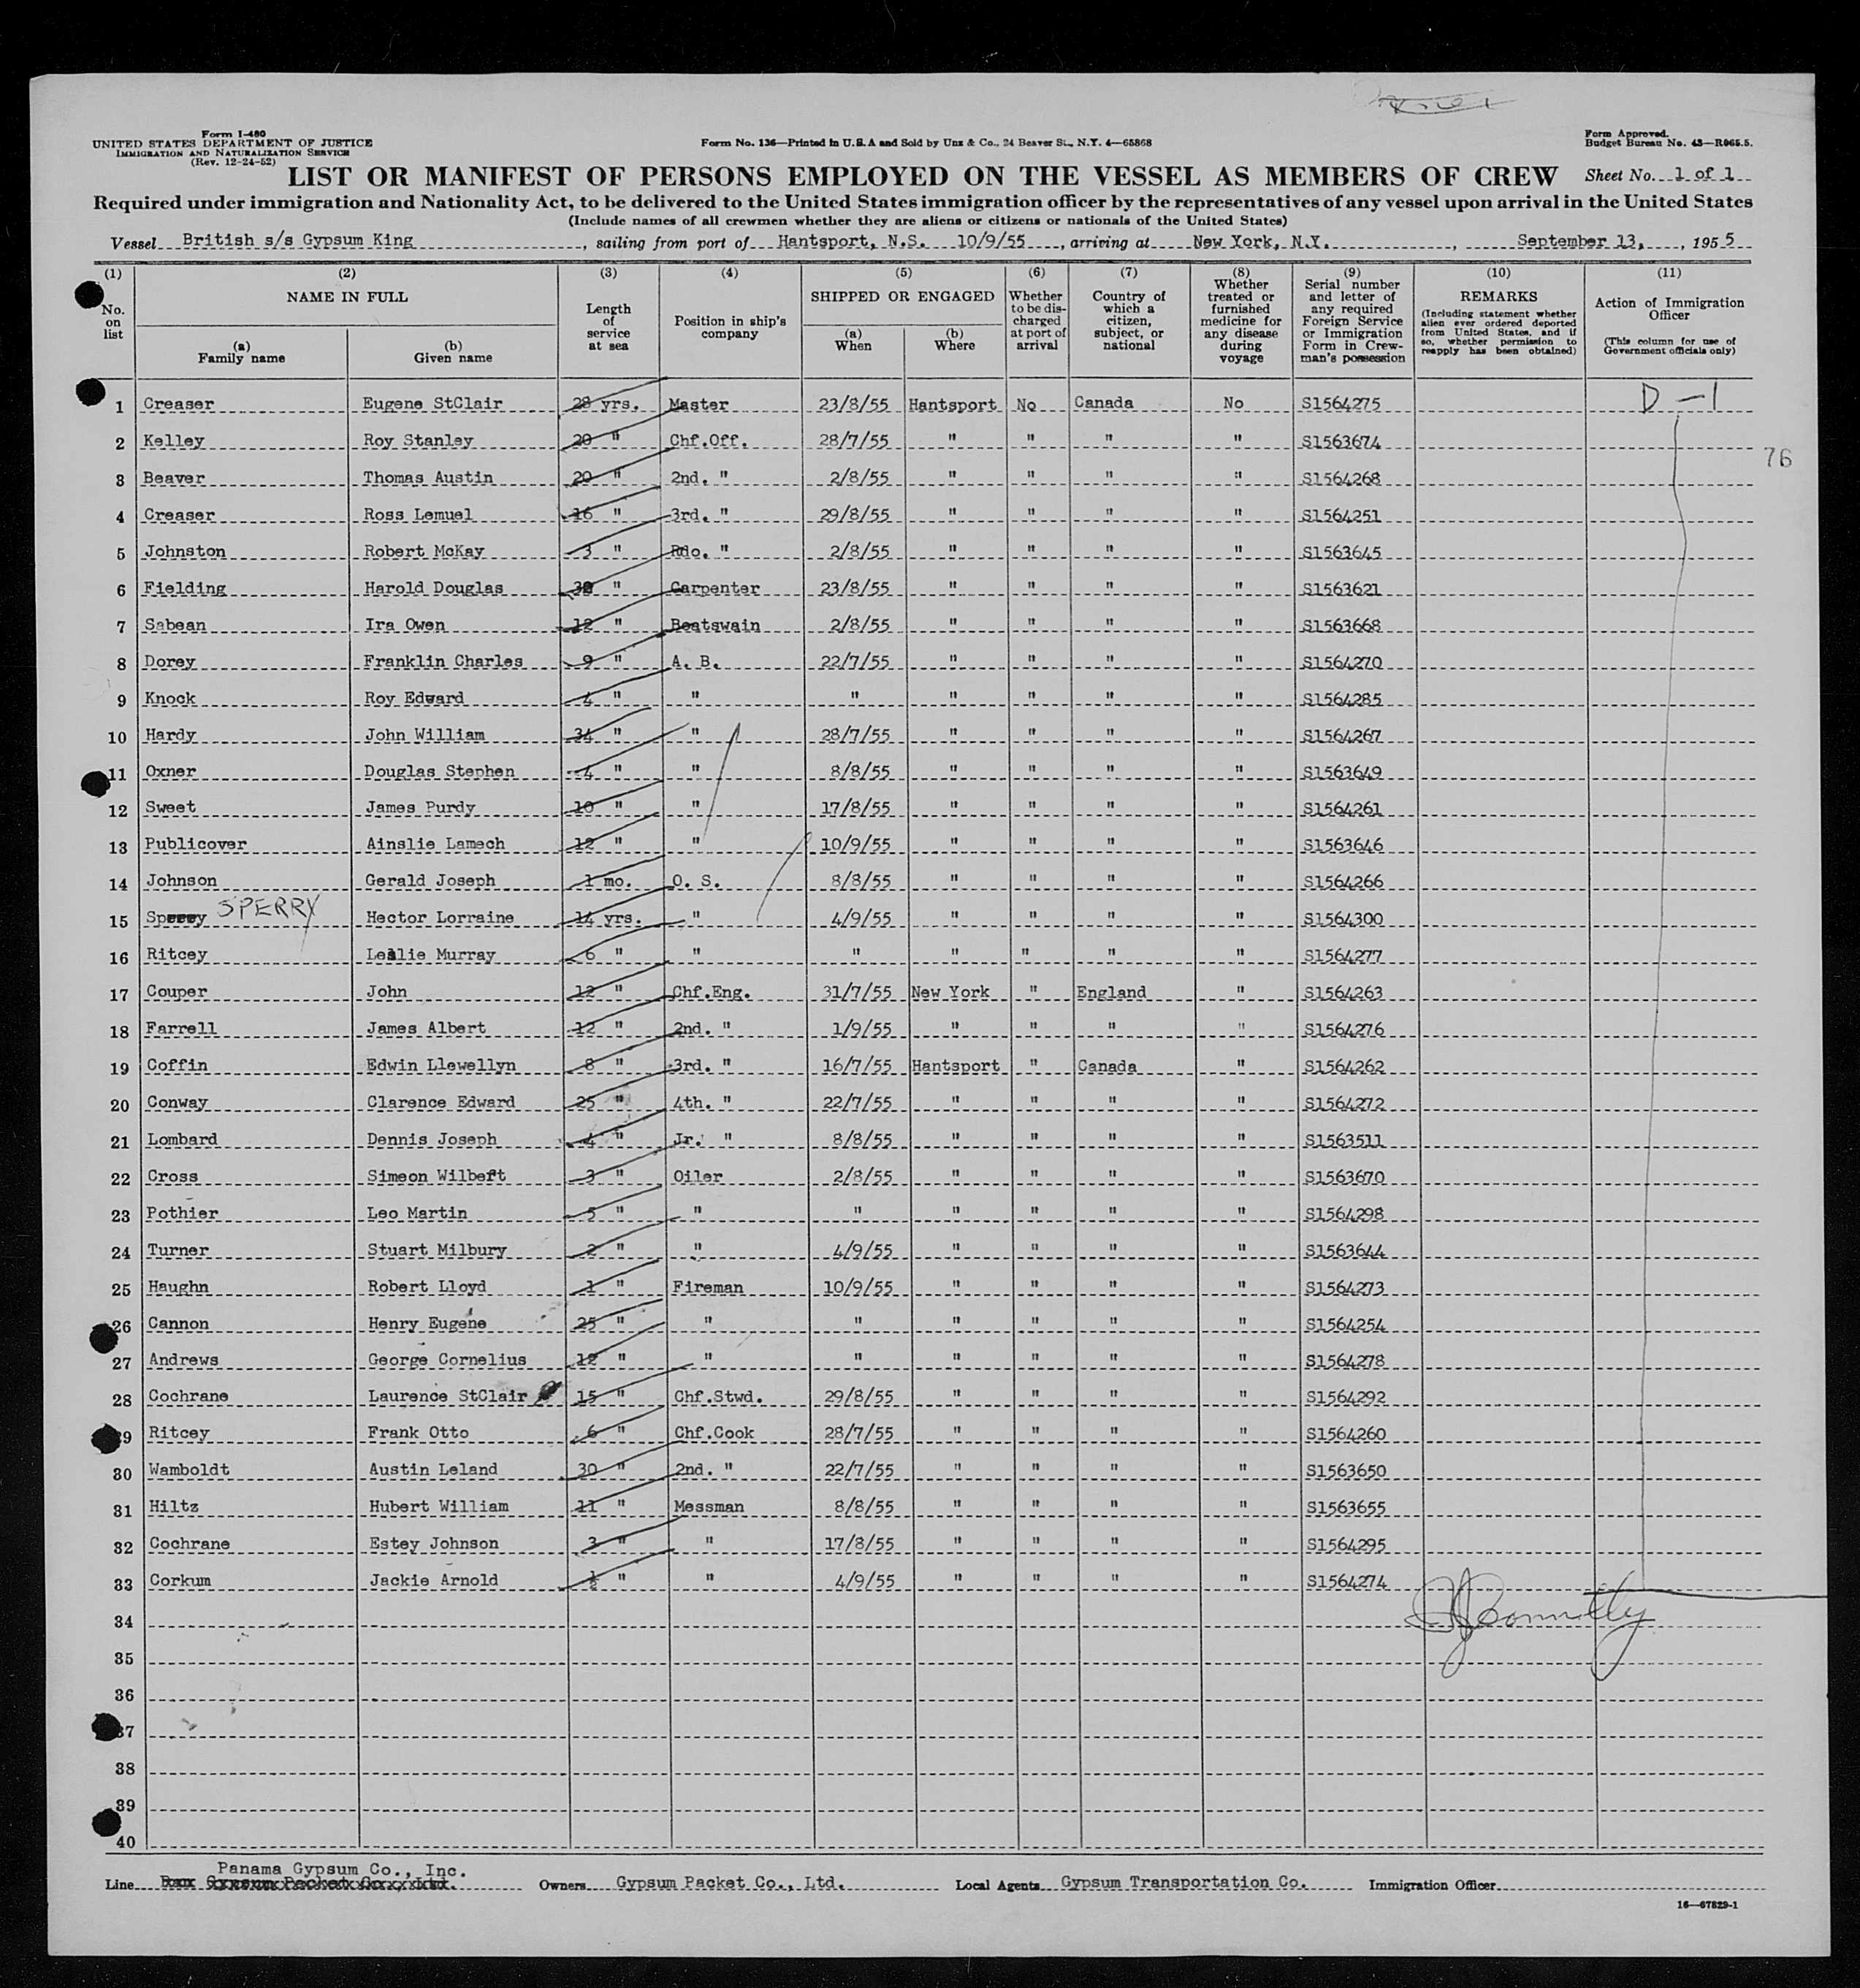 Form I-480
UNITED STATES DEPARTMENT OF JUSTICE
IMMIGRATION AND NATURALIZATION SERVICE
(Rev. 12-24-52)
Form No. 136—Printed in U.S.A and Sold by Unz & Co., 24 Beaver St., N.Y. 4—65868
Form Approved.
Budget Bureau No. 43—R065.5.
LIST OR MANIFEST OF PERSONS EMPLOYED ON THE VESSEL AS MEMBERS OF CREW Sheet No. 1 of 1
Required under immigration and Nationality Act, to be delivered to the United States immigration officer by the representatives of any vessel upon arrival in the United States
(Include names of all crewmen whether they are aliens or citizens or nationals of the United States)
Vessel British s/s Gypsum King, sailing from port of Hantsport, N.S. 10/9/55, arriving at New York, N.Y., September 13, 1955
(1) (2) (3) (4) (5) (6) (7) (8) (9) (10) (11)
No. on list
NAME IN FULL
(a) Family name
(b) Given name
Length of service at sea
Position in ship's company
SHIPPED OR ENGAGED
(a) When
(b) Where
Whether to be discharged at port of arrival
Country of which a citizen, subject, or national
Whether treated or furnished medicine for any disease during voyage
Serial number and letter of any required Foreign Service or Immigration Form in Crewman's possession
REMARKS
(Including statement whether alien ever ordered deported from United States, and if so, whether permission to reapply has been obtained)
Action of Immigration Officer
(This column for use of Government officials only)
1 Creaser Eugene StClair 28 yrs. Master 23/8/55 Hantsport No Canada No S1564275 D-1
2 Kelley Roy Stanley 20 " Chf.Off. 28/7/55 " " " " S1563674
76
3 Beaver Thomas Austin 20 " 2nd. " 2/8/55 " " " " S1564268
4 Creaser Ross Lemuel 16 " 3rd. " 29/8/55 " " " " S1564251
5 Johnston Robert McKay 3 " Rdo. " 2/8/55 " " " " S1563645
6 Fielding Harold Douglas 30 " Carpenter 23/8/55 " " " " S1563621
7 Sabean Ira Owen 12 " Boatswain 2/8/55 " " " " S1563668
8 Dorey Franklin Charles 9 " A. B. 22/7/55 " " " " S1564270
9 Knock Roy Edward 4 " " " " " " " S1564285
10 Hardy John William 34 " " 28/7/55 " " " " S1564267
11 Oxner Douglas Stephen 4 " " 8/8/55 " " " " S1563649
12 Sweet James Purdy 10 " " 17/8/55 " " " " S1564261
13 Publicover Ainslie Lamech 12 " " 10/9/55 " " " " S1563646
14 Johnson Gerald Joseph 1 mo. O. S. 8/8/55 " " " " S1564266
15 SPERRY Hector Lorraine 14 yrs. " 4/9/55 " " " " S1564300
16 Ritcey Leslie Murray 6 " " " " " " " S1564277
17 Couper John 12 " Chf.Eng. 31/7/55 New York " England " S1564263
18 Farrell James Albert 12 " 2nd. " 1/9/55 " " " " S1564276
19 Coffin Edwin Llewellyn 8 " 3rd. " 16/7/55 Hantsport " Canada " S1564262
20 Conway Clarence Edward 25 " 4th. " 22/7/55 " " " " S1564272
21 Lombard Dennis Joseph 4 " Jr. " 8/8/55 " " " " S1563511
22 Cross Simeon Wilbert 3 " Oiler 2/8/55 " " " " S1563670
23 Pothier Leo Martin 5 " " " " " " " S1564298
24 Turner Stuart Milbury 2 " " 4/9/55 " " " " S1563644
25 Haughn Robert Lloyd 1 " Fireman 10/9/55 " " " " S1564273
26 Cannon Henry Eugene 25 " " " " " " " S1564254
27 Andrews George Cornelius 12 " " " " " " " S1564278
28 Cochrane Laurence StClair 15 " Chf.Stwd. 29/8/55 " " " " S1564292
29 Ritcey Frank Otto 6 " Chf.Cook 28/7/55 " " " " S1564260
30 Wamboldt Austin Leland 30 " 2nd. " 22/7/55 " " " " S1563650
31 Hiltz Hubert William 11 " Messman 8/8/55 " " " " S1563655
32 Cochrane Estey Johnson 3 " " 17/8/55 " " " " S1564295
33 Corkum Jackie Arnold " " 4/9/55 " " " " S1564274
34 Connolly
35
36
37
38
39
40
Panama Gypsum Co., Inc.
Line Gypsum Packet Co., Ltd. Owners Gypsum Packet Co., Ltd. Local Agents Gypsum Transportation Co. Immigration Officer
16—67829-1